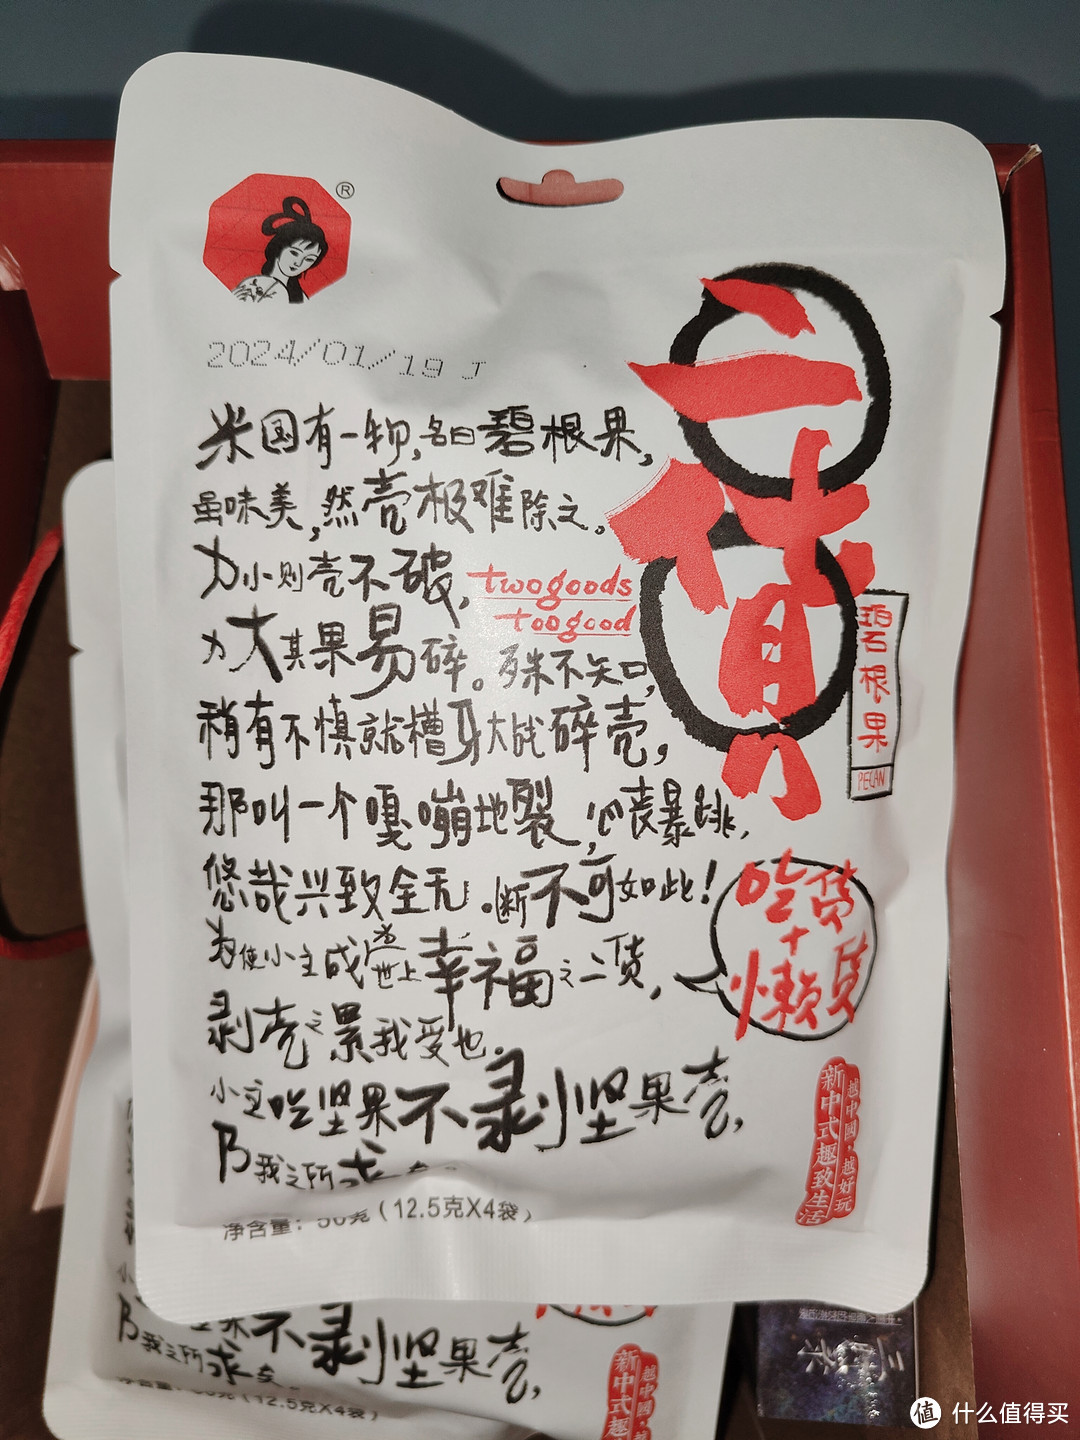 ®
2024/01/19 J
米国有一物,名曰碧根果,
虽味美,然壳极难除之。
力小则壳不破,
twogoods
toogood
力大其果易碎。殊不知,
稍有不慎就槽牙大战碎壳,
那叫一个嘎嘣地裂,心丧暴跳,
悠哉兴致全无。断不可如此!
为使小主成为世上幸福之二货,
剥壳之累我受也。
小主吃坚果不剥坚果壳,
乃我之所求
净含量:50克(12.5克X4袋)
二货
碧根果
PECAN
吃货
+
懒货
越中國·越好玩
新中式趣致生活
果不剥坚果壳,
乃我之所求
(12.5克X4袋)
越中國·
新中式趣
值 什么值得买